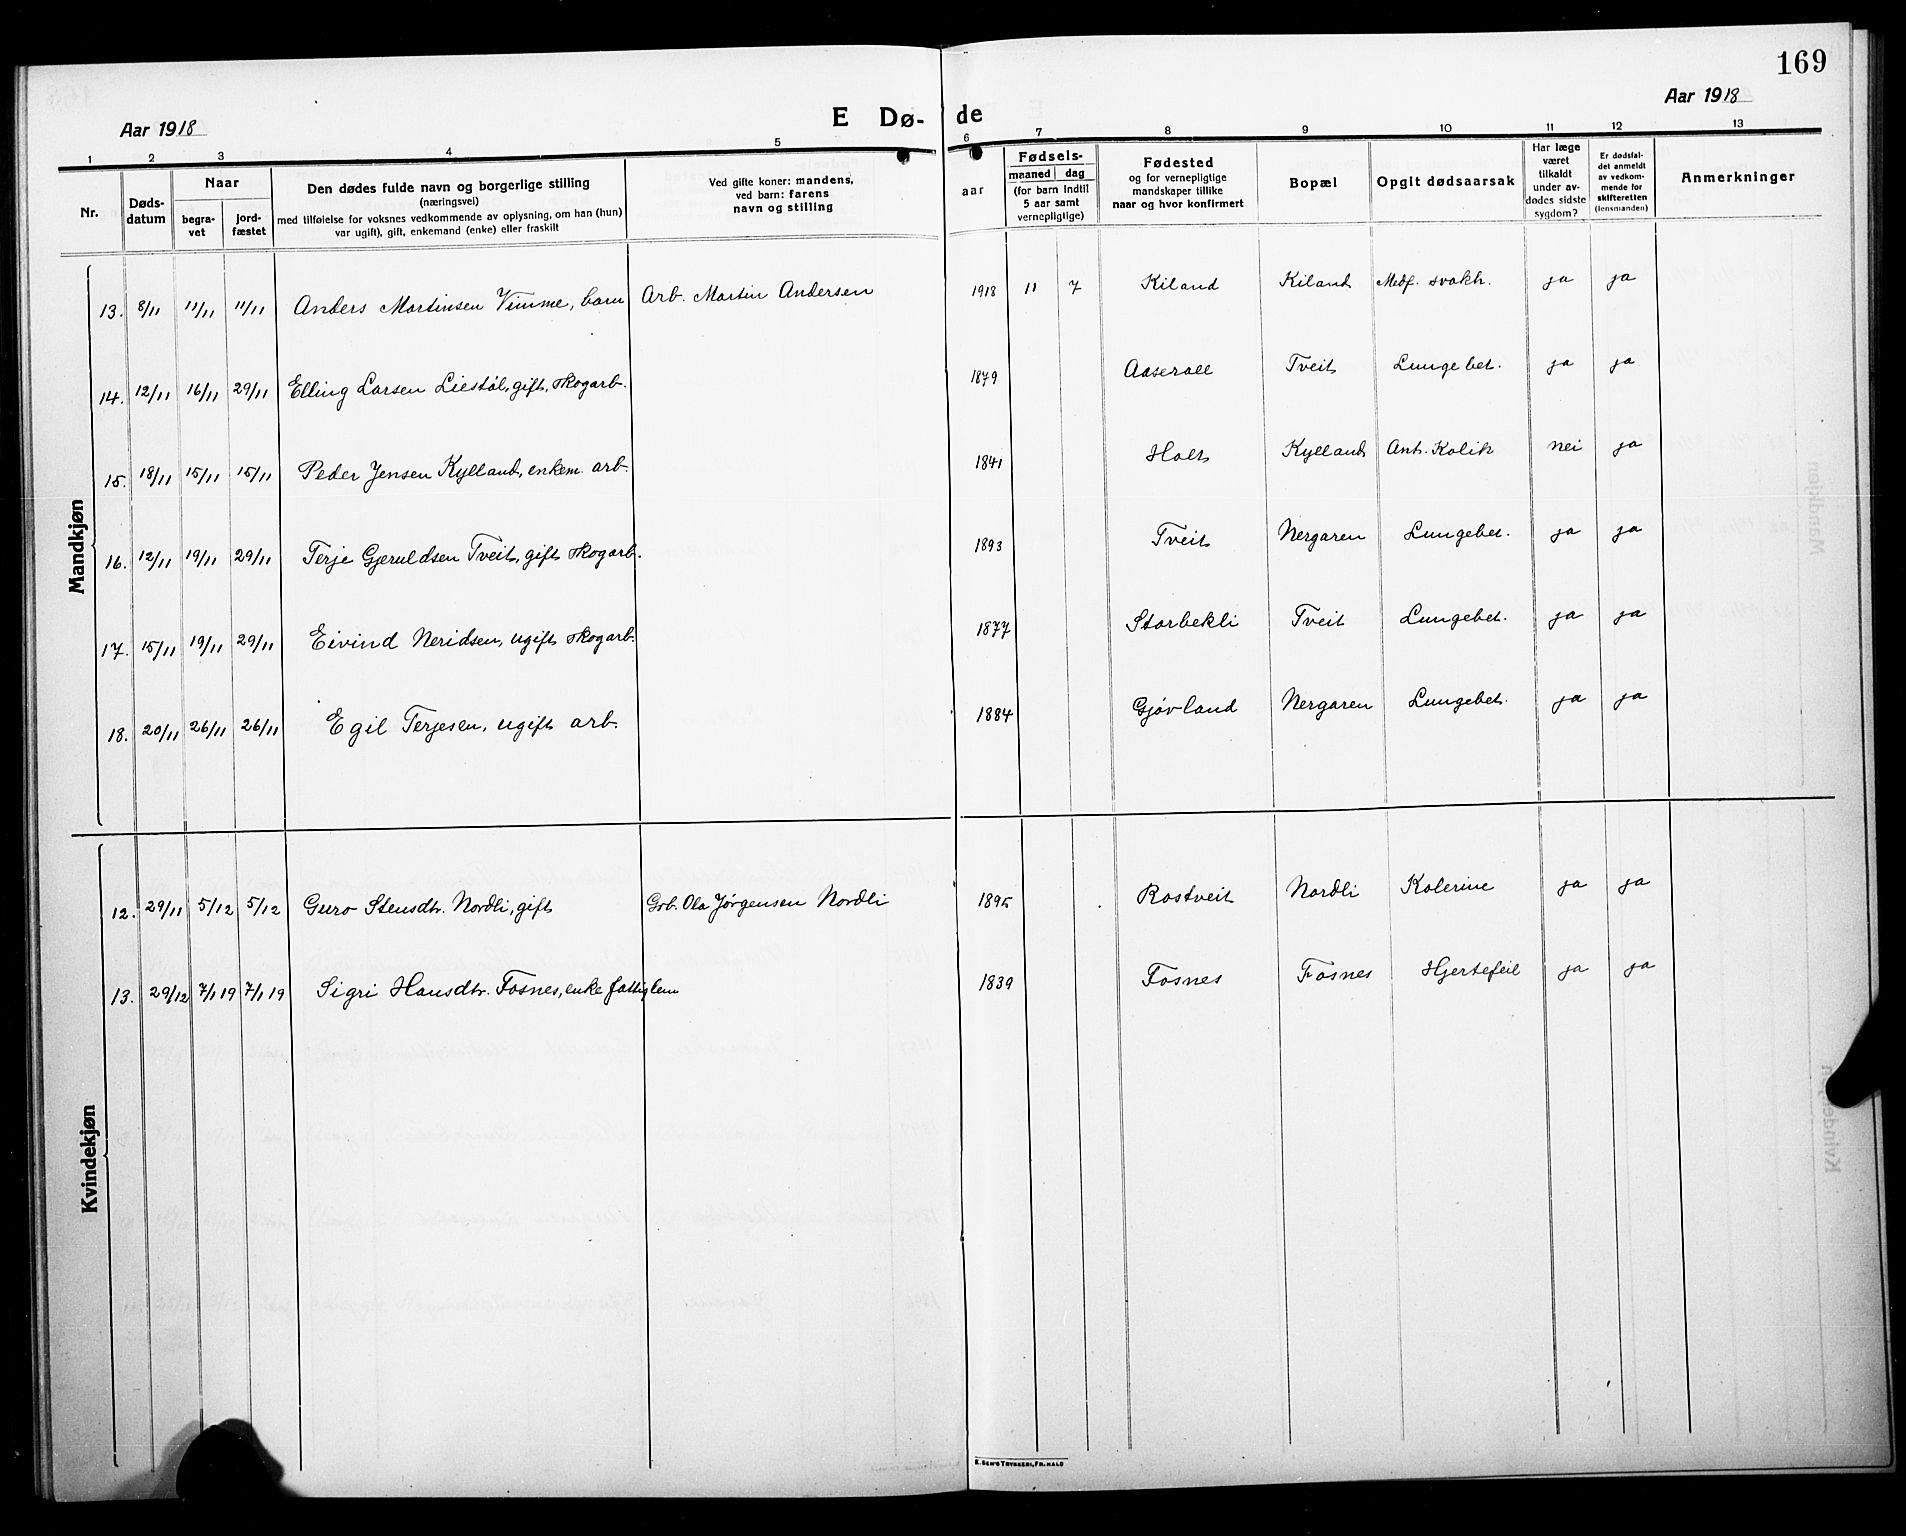 169
Aar 1918
E Dø-
de
Aar 1918
1 2 3 4 5 6 7 8 9 10 11 12 13
Nr.
Døds-
datum
Naar
begra-
vet
jord-
fæstet
Den dødes fulde navn og borgerlige stilling
(næringsvei)
med tilføielse for voksnes vedkommende av oplysning, om han (hun)
var ugift), gift, enkemand (enke) eller fraskilt
Ved gifte koner: mandens,
ved barn: farens
navn og stilling
aar
Fødsels-
maaned dag
(for barn indtil
5 aar samt
vernepligtige)
Fødested
og for vernepligtige
mandskaper tillike
naar og hvor konfirmert
Bopæl
Opgit dødsaarsak
Har læge
været
tilkaldt
under av-
dødes sidste
sygdom?
Er dødsfal-
det anmeldt
av vedkom-
mende for
skifteretten
(lensmanden)
Anmerkninger
Mandkjøn
13. 8/11 11/11 11/11 Anders Martinsen Vimme, barn Arb. Martin Andersen 1918 11 7 Kiland Kiland Medf. svakh. ja ja
14. 12/11 16/11 29/11 Elling Larsen Liestøl, gift, skogarb. 1879 Aaserall Tveit Lungebet. ja ja
15. 18/11 15/11 15/11 Peder Jensen Kylland, enkem. arb. 1841 Holt Kylland Ant. Kolik nei ja
16. 12/11 19/11 29/11 Terje Gjeruldsen Tveit, gift skogarb. 1893 Tveit Nergaren Lungebet. ja ja
17. 15/11 19/11 29/11 Eivind Neridsen, ugift skogarb. 1877 Storbekli Tveit Lungebet. ja ja
18. 20/11 26/11 26/11 Egil Terjesen, ugift arb. 1884 Gjøvland Nergaren Lungebet. ja ja
Kvindekjøn
12. 29/11 5/12 5/12 Guro Stensdtr. Nordli, gift Grb. Ola Jørgensen Nordli 1895 Rostveit Nordli Kolerine ja ja
13. 29/12 7/1 19 7/1 19 Sigri Hansdtr. Fosnes, enke fattiglem 1839 Fosnes Fosnes Hjertefeil ja ja
E. SEM'S TRYKKERI, FR.HALD